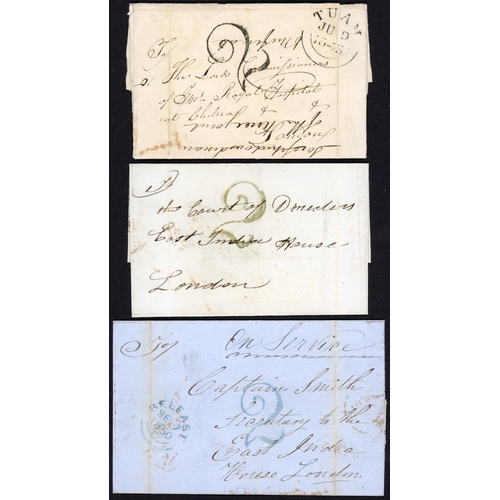 TUAM
JU 9
2
To
The Lords Commissioners
of Her Royal Hospital
at Chelsea &
2
To
the Court of Directors
East India House
London
To
On Service
BELFAST
SE
2
Captain Smith
Secretary to the
East India
House London